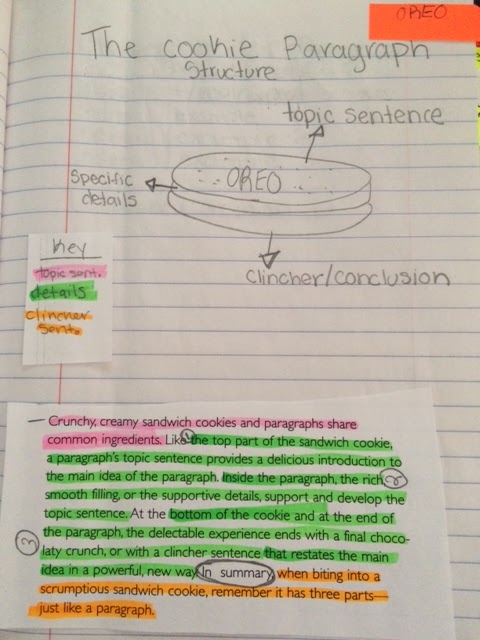 OREO
The cookie Paragraph
Structure
topic sentence
OREO
Specific
details
clincher/conclusion
Key
topic sent.
details
clincher
sent.
— Crunchy, creamy sandwich cookies and paragraphs share
common ingredients. Like ① the top part of the sandwich cookie,
a paragraph's topic sentence provides a delicious introduction to
the main idea of the paragraph. Inside the paragraph, the rich ②
smooth filling, or the supportive details, support and develop the
topic sentence. At the bottom of the cookie and at the end of
③ the paragraph, the delectable experience ends with a final choco-
laty crunch, or with a clincher sentence that restates the main
idea in a powerful, new way. In summary, when biting into a
scrumptious sandwich cookie, remember it has three parts—
just like a paragraph.